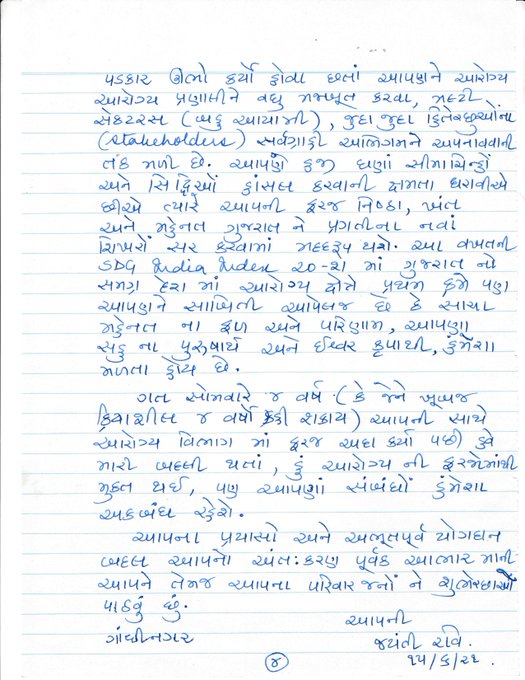 પડકાર ઊભો કર્યો હોવા છતાં આપણને આરોગ્ય
આરોગ્ય પ્રણાલીને વધુ મજબૂત કરવા, મલ્ટી
સેકટરલ (બહુ આયામી), જુદા જુદા હિતેચ્છુઓના
(stakeholders) સર્વગ્રાહી અભિગમને અપનાવવાની
તક મળી છે. આપણે હજુ ઘણાં સીમાચિન્હો
અને સિદ્ધિઓ હાંસલ કરવાની ક્ષમતા ધરાવીએ
છીએ ત્યારે આપની ફરજ નિષ્ઠા, ખંત
અને મહેનત ગુજરાત ને પ્રગતીના નવાં
શિખરો સર કરવામાં મદદરૂપ થશે. આ વખતની
SDG India Index ૨૦-૨૧ માં ગુજરાત નો
સમગ્ર દેશ માં આરોગ્ય ક્ષેત્રે પ્રથમ ક્રમે પણ
આપણને સાબિતી આપેલજ છે કે સાચા
મહેનત ના ફળ અને પરિણામ, આપણા
સહુ ના પુરુષાર્થ અને ઈશ્વર કૃપાથી, હંમેશા
મળતા હોય છે.
ગત સોમવારે ૪ વર્ષ (કે જેને ખૂબજ
ક્રિયાશીલ ૪ વર્ષો કહી શકાય) આપની સાથે
આરોગ્ય વિભાગ માં ફરજ અદા કર્યા પછી હવે
મારી બદલી થતાં, હું આરોગ્ય ની ફરજોમાંથી
મુકત થઈ, પણ આપણાં સંબંધો હંમેશા
અકબંધ રહેશે.
આપના પ્રયાસો અને અભૂતપૂર્વ યોગદાન
બદલ આપનો અંત:કરણ પૂર્વક આભાર માની
આપને તેમજ આપના પરિવાર જનોં ને શુભેચ્છાઓ
પાઠવું છું.
આપની
ગાંધીનગર જયંતી રવિ.
૪ ૧૫/૬/૨૧